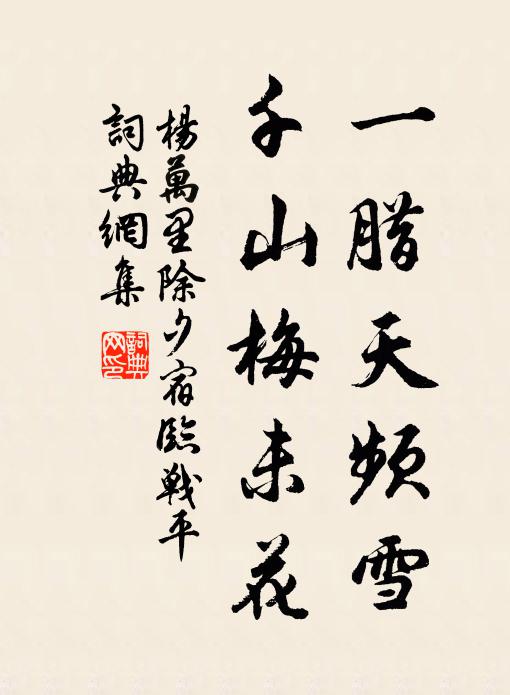 一腊天频雪
千山梅未花
楊萬里除夕宿臨戰平
詞典網集
詞典
网印